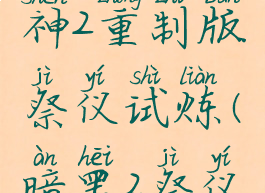 神2重制版
jì yí shì liàn
祭仪试炼(
àn hēi jì yí
暗黑2祭仪